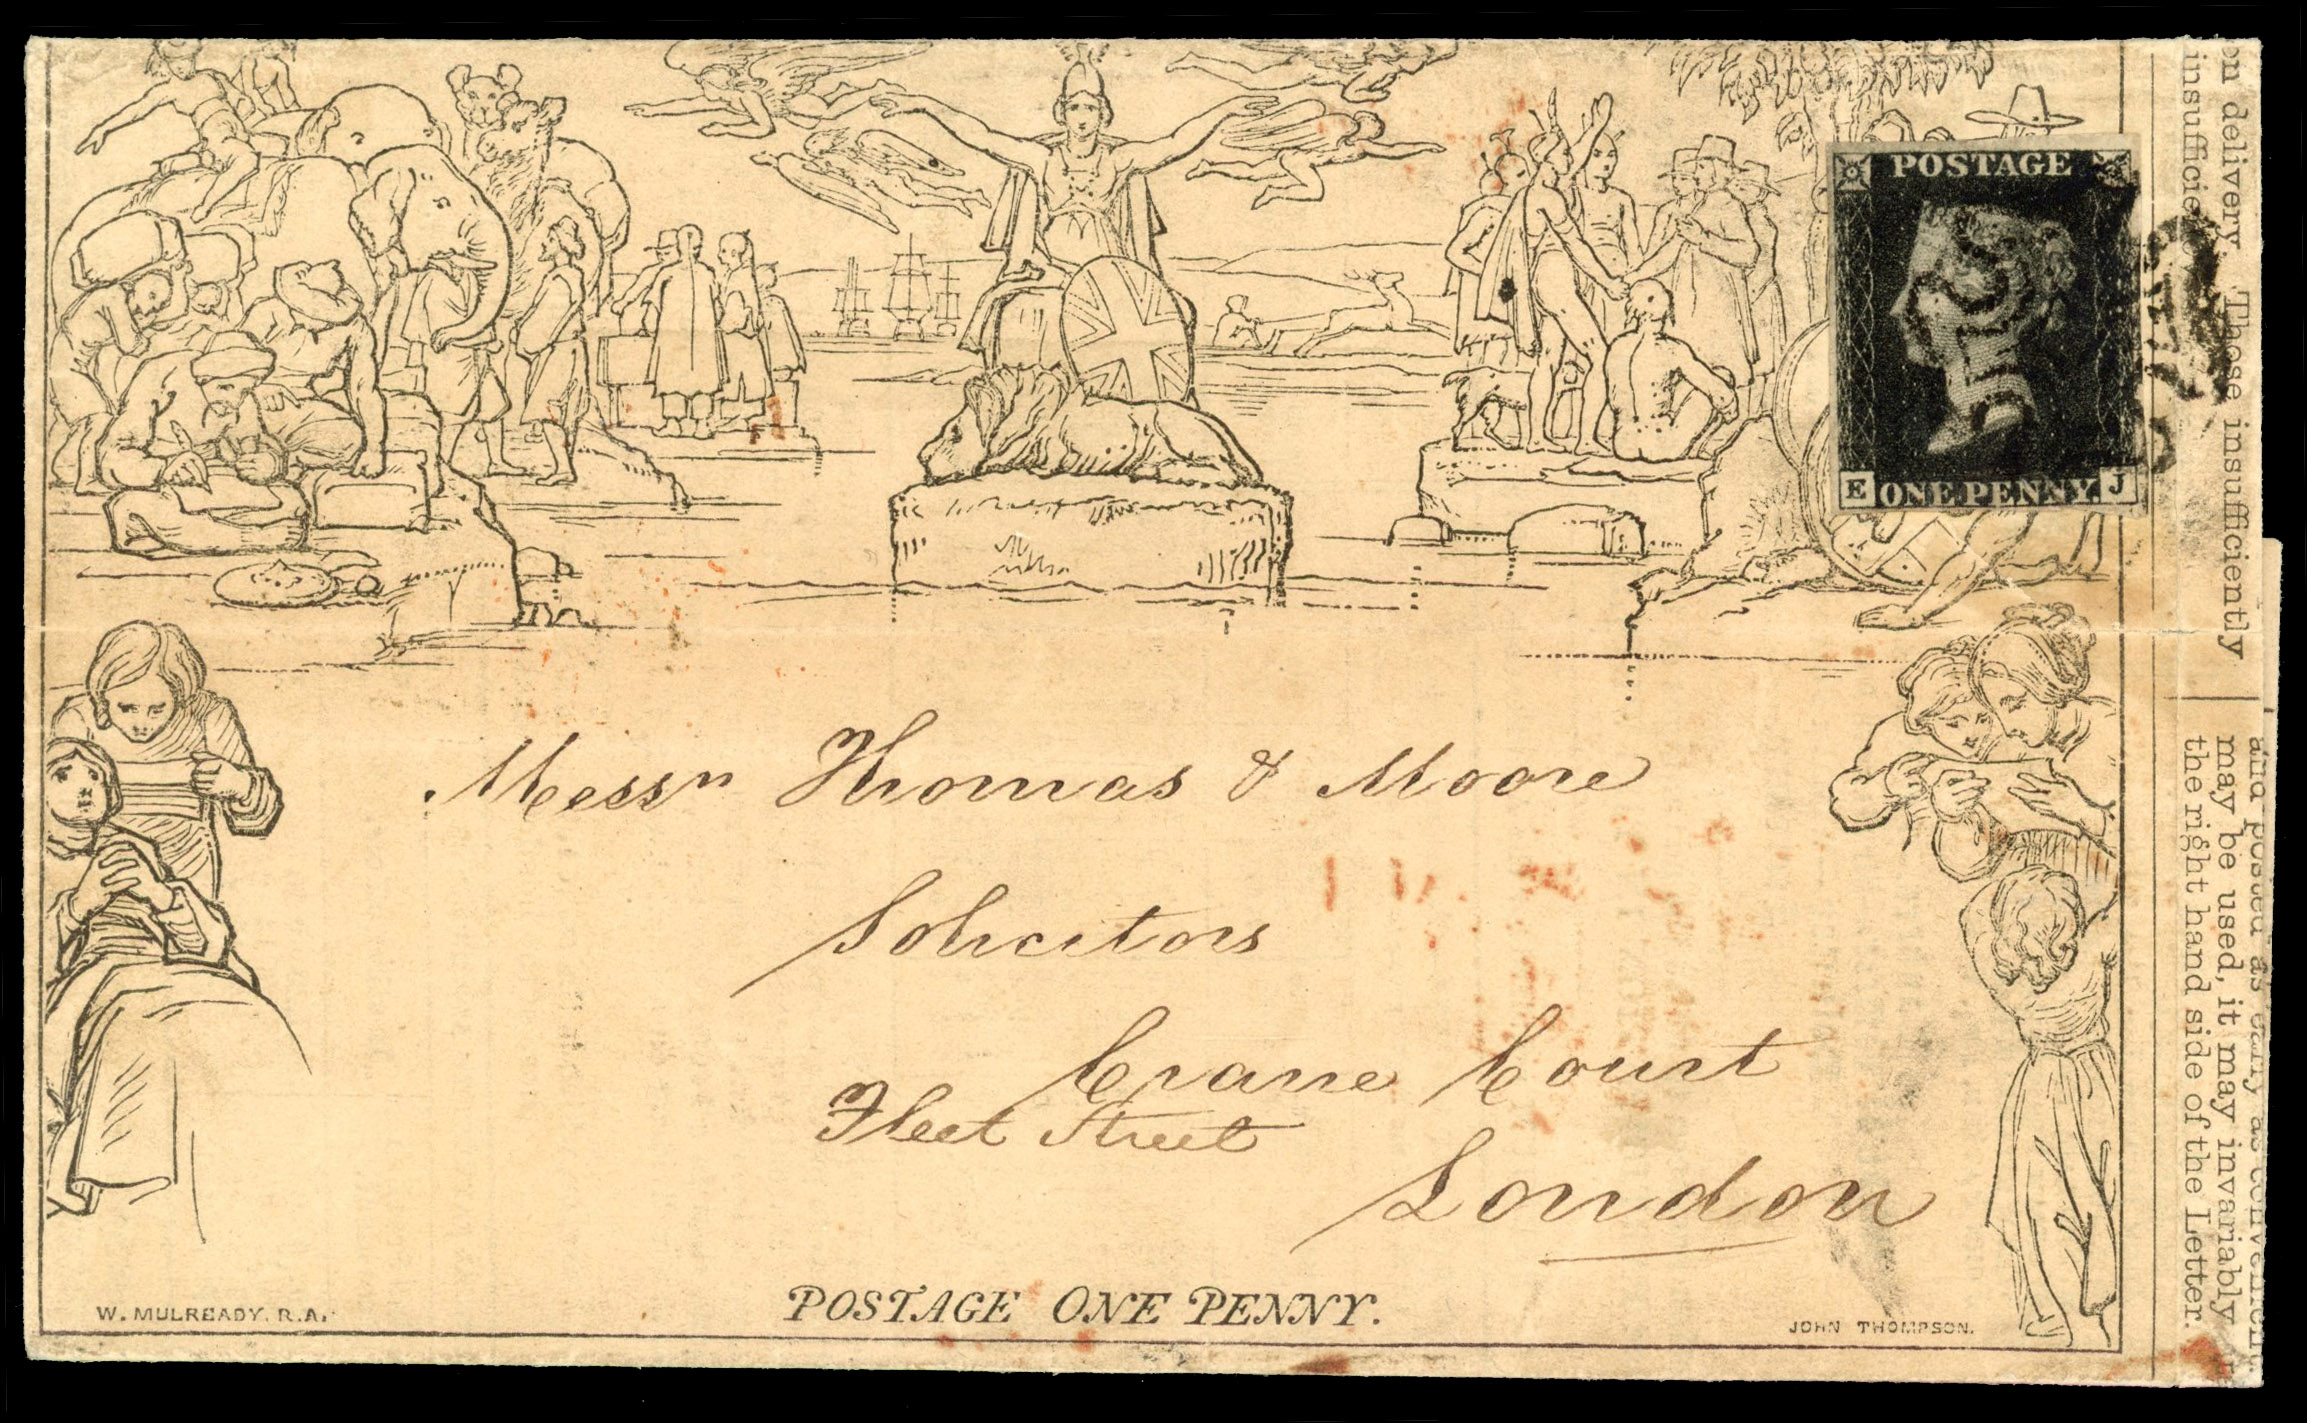 POSTAGE
E ONE PENNY J
Messrs Thomas & Moore
Solicitors
Crane Court
Fleet Street
London
POSTAGE ONE PENNY.
W. MULREADY. R.A.
JOHN THOMPSON.
on delivery. These insufficiently
and posted as early as convenient.
may be used, it may invariably
the right hand side of the Letter.